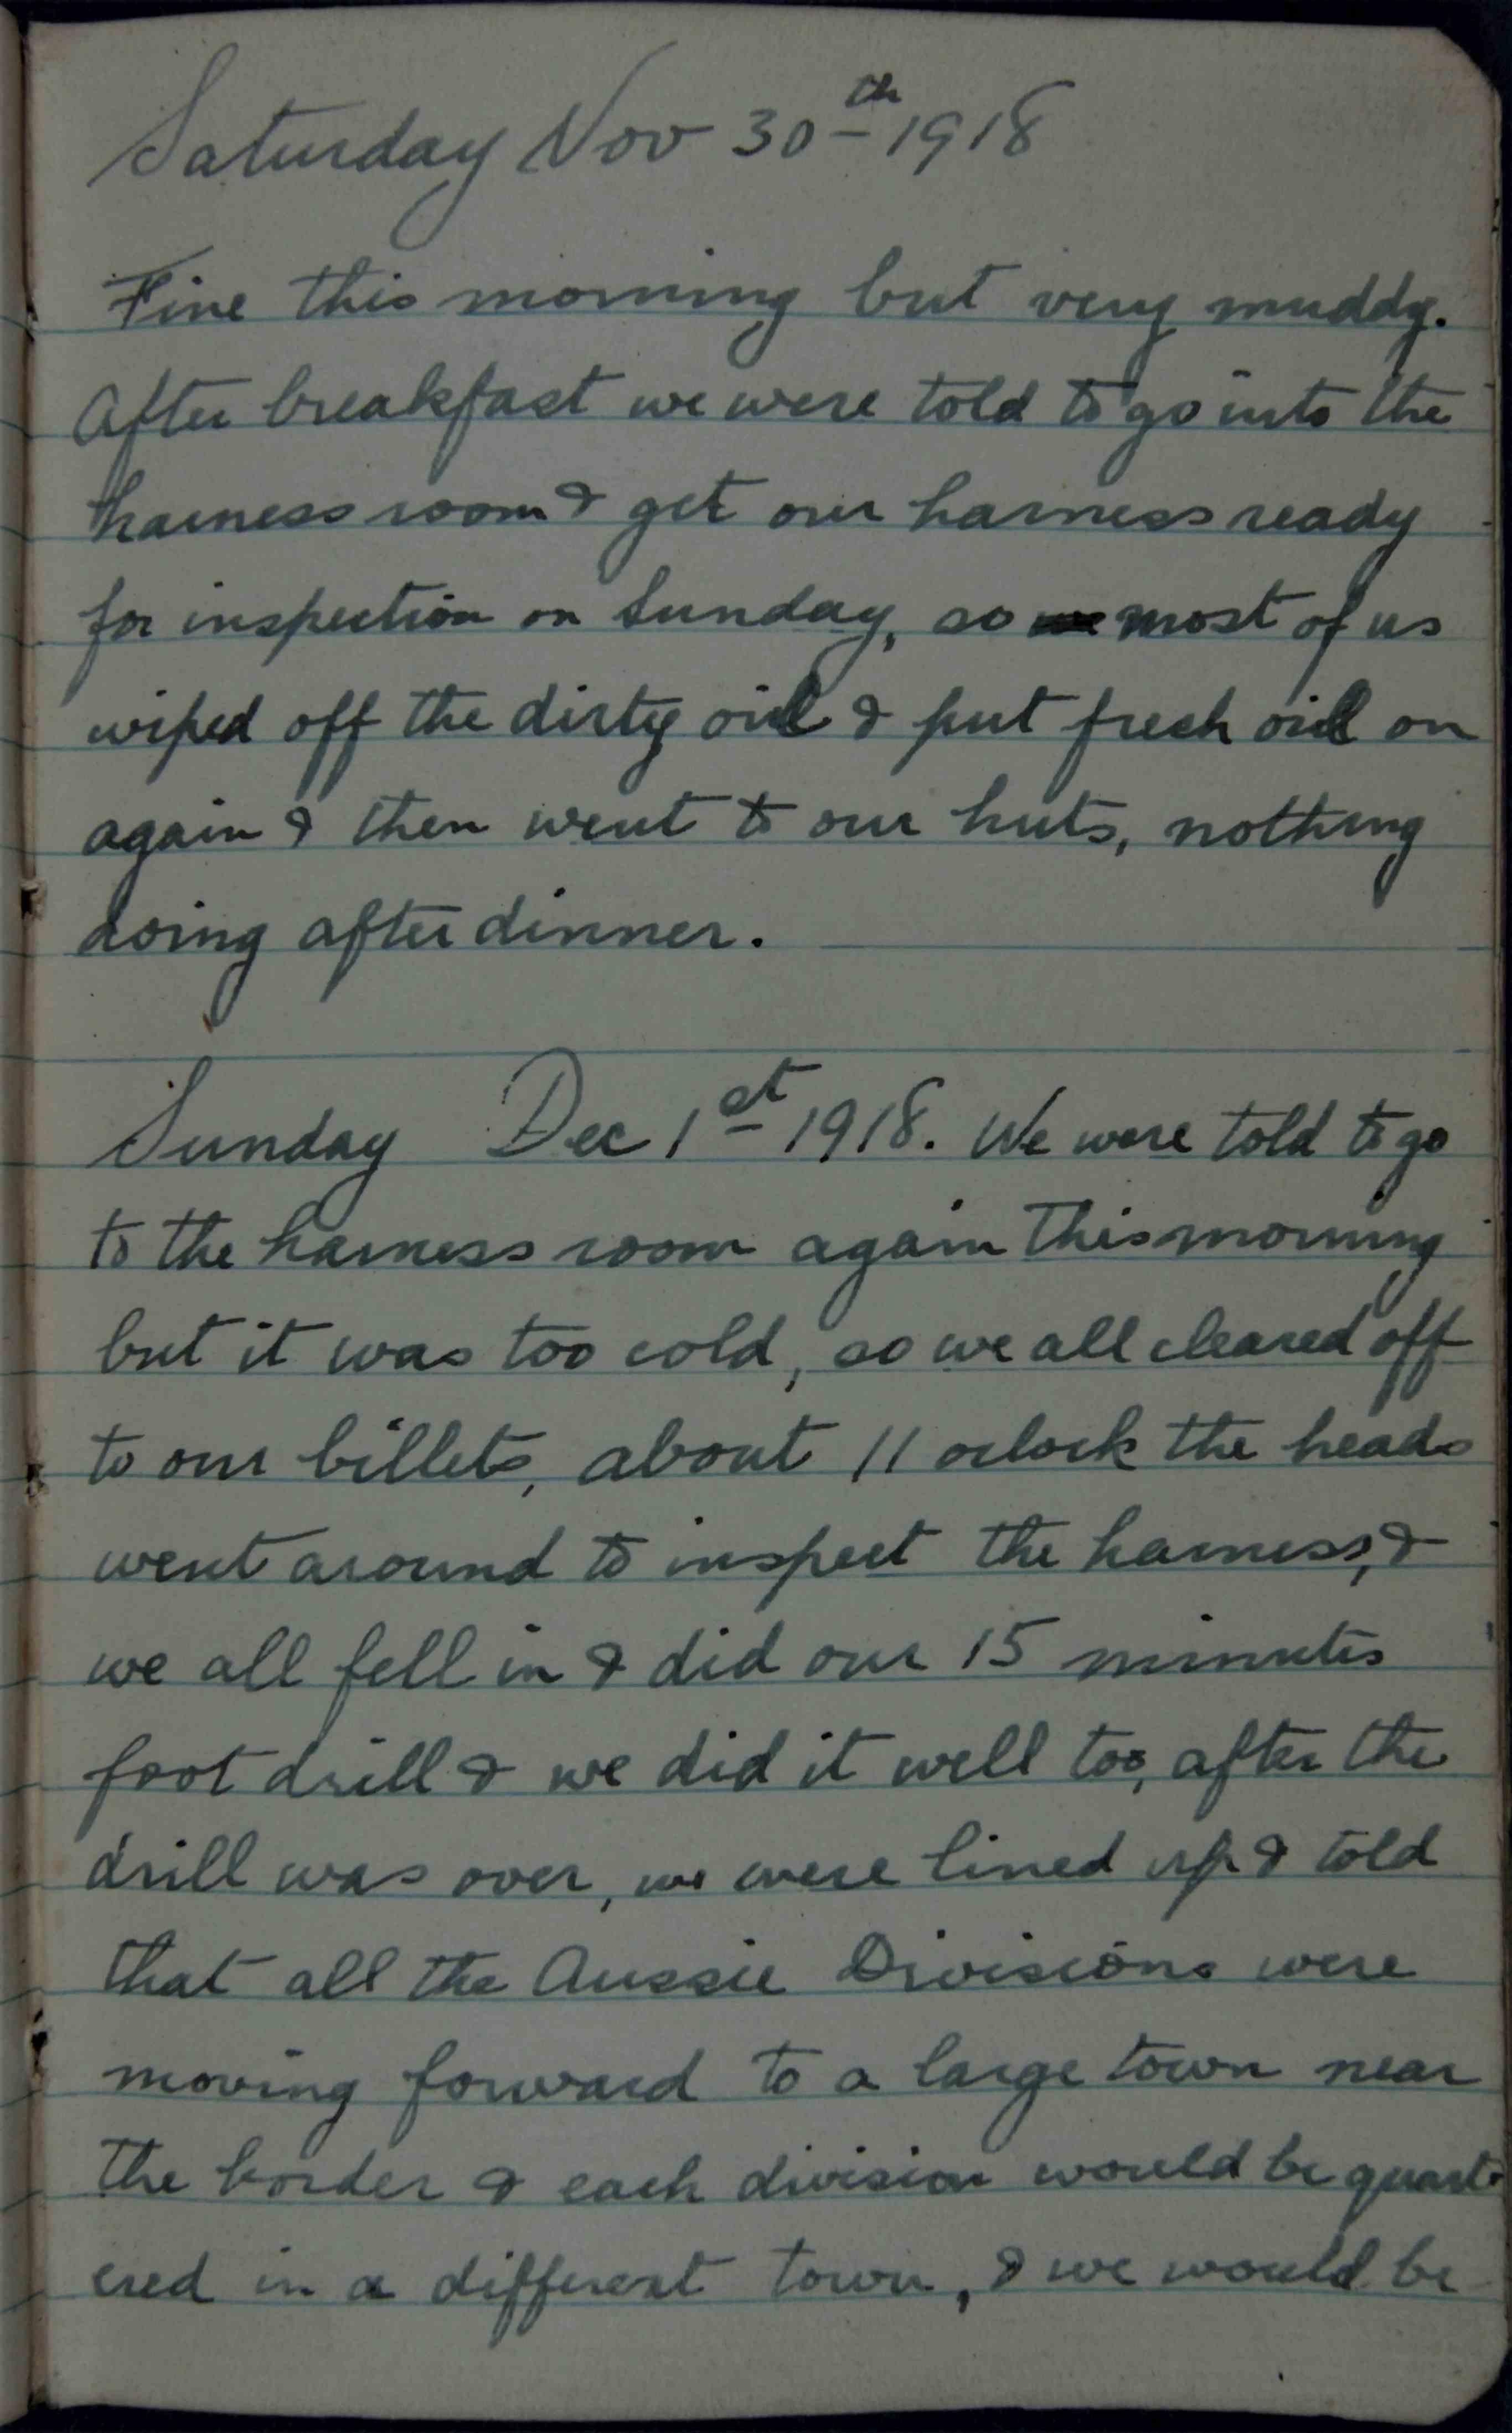 Saturday Nov 30th 1918
Fine this morning but very muddy.
After breakfast we were told to go into the
harness room & get our harness ready
for inspection on Sunday, so most of us
wiped off the dirty oil & put fresh oil on
again & then went to our huts, nothing
doing after dinner.
Sunday Dec 1st 1918. We were told to go
to the harness room again this morning
but it was too cold, so we all cleared off
to our billets, about 11 oclock the heads
went around to inspect the harness, &
we all fell in & did our 15 minutes
foot drill & we did it well too, after the
drill was over, we were lined up & told
that all the Aussie Divisions were
moving forward to a large town near
the border & each division would be quart
ered in a different town, & we would be